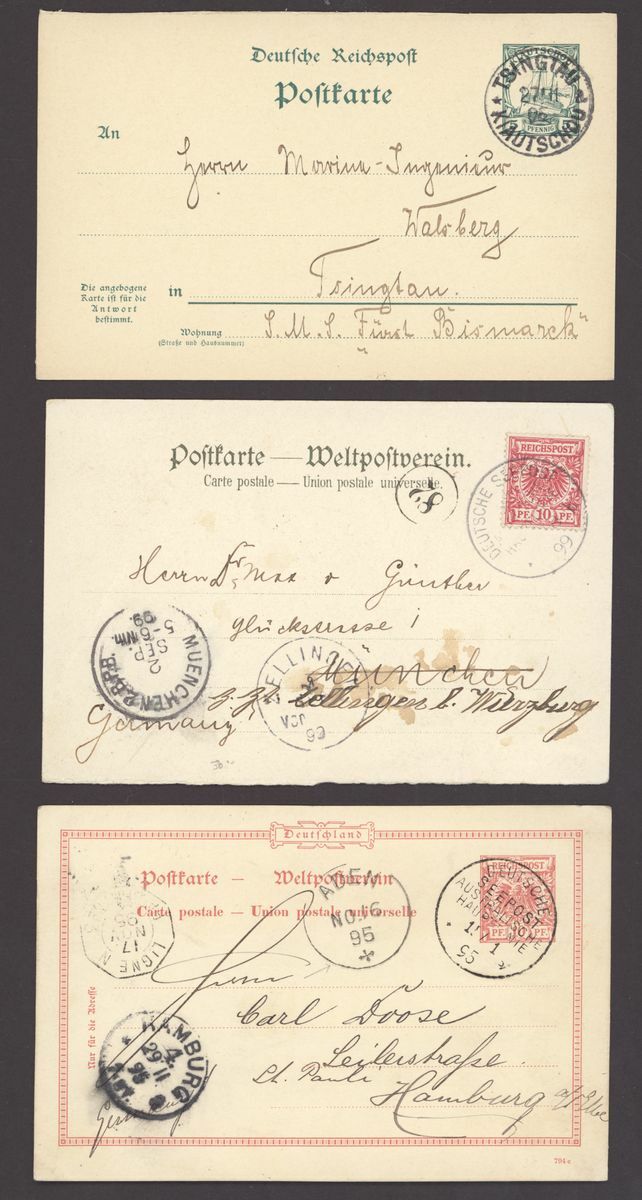 Deutsche Reichspost
Postkarte
KIAUTSCHOU
5 PFENNIG
TSINGTAU
27 11
02
KIAUTSCHOU
An
Herrn Marine-Ingenieur
Walsberg
Die angebogene
Karte ist für die
Antwort
bestimmt.
in Tsingtau.
Wohnung
(Straße und Hausnummer)
S.M.S. „Fürst Bismarck“
Postkarte — Weltpostverein.
Carte postale — Union postale universelle.
REICHSPOST
PF 10 PF
DEUTSCHE SEEPOST
99
Herrn Dr. Max v Günther
Glückstrasse 1
München
z. Zt. Zellingen b. Würzburg
Germany
MUENCHEN
2
SEP.
5-6 Nm.
99
ZELLINGEN
99
30.-
Deutschland
Postkarte — Weltpostverein
Carte postale — Union postale universelle
REICHSPOST
PF 10 PF
DEUTSCHE
SEEPOST
AUSTRALISCHE
HAUPTLINIE
95
ADEN
NO.16
95
LIGNE N
17
NOV
95
Nur für die Adresse
Herrn
Carl Doose
Seilerstraße
St. Pauli
Hamburg a/Elbe
HAMBURG
4
29 11
95
Germany
794e